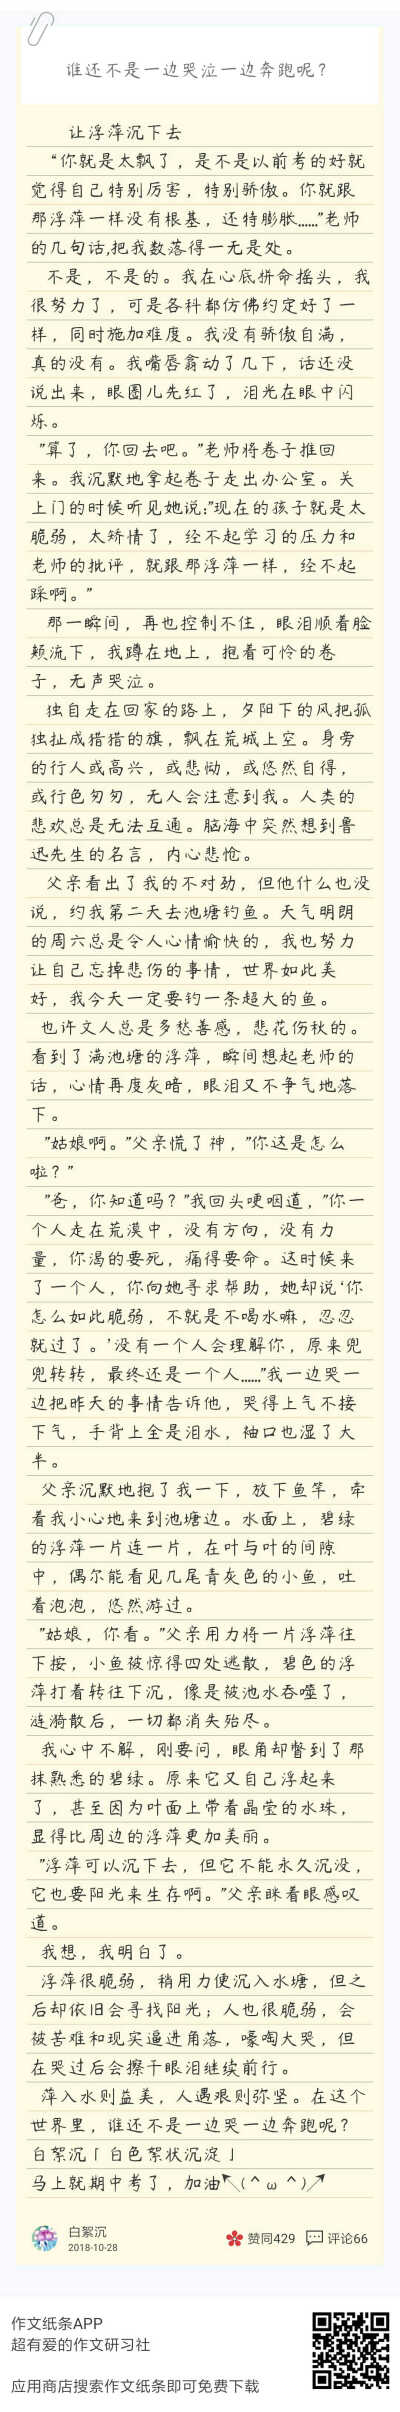 谁还不是一边哭泣一边奔跑呢？
让浮萍沉下去
“你就是太飘了，是不是以前考的好就
觉得自己特别厉害，特别骄傲。你就跟
那浮萍一样没有根基，还特膨胀……”老师
的几句话,把我数落得一无是处。
不是，不是的。我在心底拼命摇头，我
很努力了，可是各科都仿佛约定好了一
样，同时施加难度。我没有骄傲自满，
真的没有。我嘴唇翕动了几下，话还没
说出来，眼圈儿先红了，泪光在眼中闪
烁。
”算了，你回去吧。”老师将卷子推回
来。我沉默地拿起卷子走出办公室。关
上门的时候听见她说:”现在的孩子就是太
脆弱，太矫情了，经不起学习的压力和
老师的批评，就跟那浮萍一样，经不起
踩啊。”
那一瞬间，再也控制不住，眼泪顺着脸
颊流下，我蹲在地上，抱着可怜的卷
子，无声哭泣。
独自走在回家的路上，夕阳下的风把孤
独扯成猎猎的旗，飘在荒城上空。身旁
的行人或高兴，或悲恸，或悠然自得，
或行色匆匆，无人会注意到我。人类的
悲欢总是无法互通。脑海中突然想到鲁
迅先生的名言，内心悲怆。
父亲看出了我的不对劲，但他什么也没
说，约我第二天去池塘钓鱼。天气明朗
的周六总是令人心情愉快的，我也努力
让自己忘掉悲伤的事情，世界如此美
好，我今天一定要钓一条超大的鱼。
也许文人总是多愁善感，悲花伤秋的。
看到了满池塘的浮萍，瞬间想起老师的
话，心情再度灰暗，眼泪又不争气地落
下。
”姑娘啊。”父亲慌了神，”你这是怎么
啦？”
”爸，你知道吗？”我回头哽咽道，”你一
个人走在荒漠中，没有方向，没有力
量，你渴的要死，痛得要命。这时候来
了一个人，你向她寻求帮助，她却说‘你
怎么如此脆弱，不就是不喝水嘛，忍忍
就过了。’没有一个人会理解你，原来兜
兜转转，最终还是一个人……”我一边哭一
边把昨天的事情告诉他，哭得上气不接
下气，手背上全是泪水，袖口也湿了大
半。
父亲沉默地抱了我一下，放下鱼竿，牵
着我小心地来到池塘边。水面上，碧绿
的浮萍一片连一片，在叶与叶的间隙
中，偶尔能看见几尾青灰色的小鱼，吐
着泡泡，悠然游过。
”姑娘，你看。”父亲用力将一片浮萍往
下按，小鱼被惊得四处逃散，碧色的浮
萍打着转往下沉，像是被池水吞噬了，
涟漪散后，一切都消失殆尽。
我心中不解，刚要问，眼角却瞥到了那
抹熟悉的碧绿。原来它又自己浮起来
了，甚至因为叶面上带着晶莹的水珠，
显得比周边的浮萍更加美丽。
”浮萍可以沉下去，但它不能永久沉没，
它也要阳光来生存啊。”父亲眯着眼感叹
道。
我想，我明白了。
浮萍很脆弱，稍用力便沉入水塘，但之
后却依旧会寻找阳光；人也很脆弱，会
被苦难和现实逼进角落，嚎啕大哭，但
在哭过后会擦干眼泪继续前行。
萍入水则益美，人遇艰则弥坚。在这个
世界里，谁还不是一边哭一边奔跑呢？
白絮沉「白色絮状沉淀」
马上就期中考了，加油↖(＾ω＾)↗
白絮沉
2018-10-28
赞同429
评论66
作文纸条APP
超有爱的作文研习社
应用商店搜索作文纸条即可免费下载